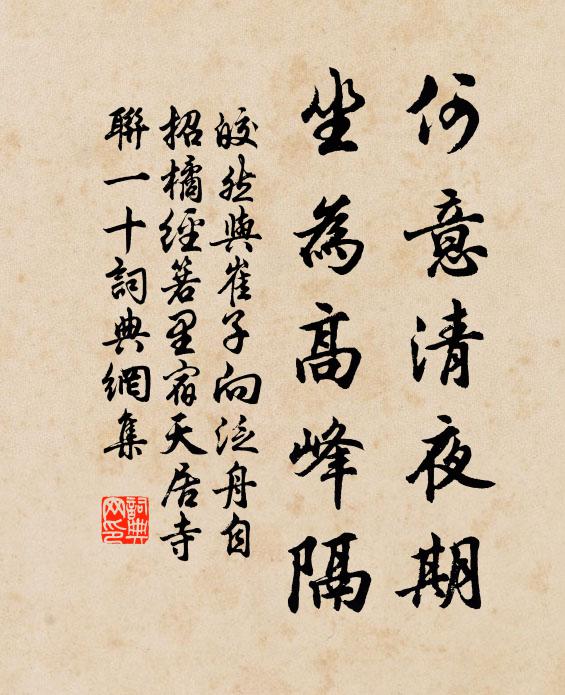 何意清夜期
坐為高峰隔
皎然與崔子向泛舟自
招橘經箬里宿天居寺
聯一十詞典網集
詞典
网印